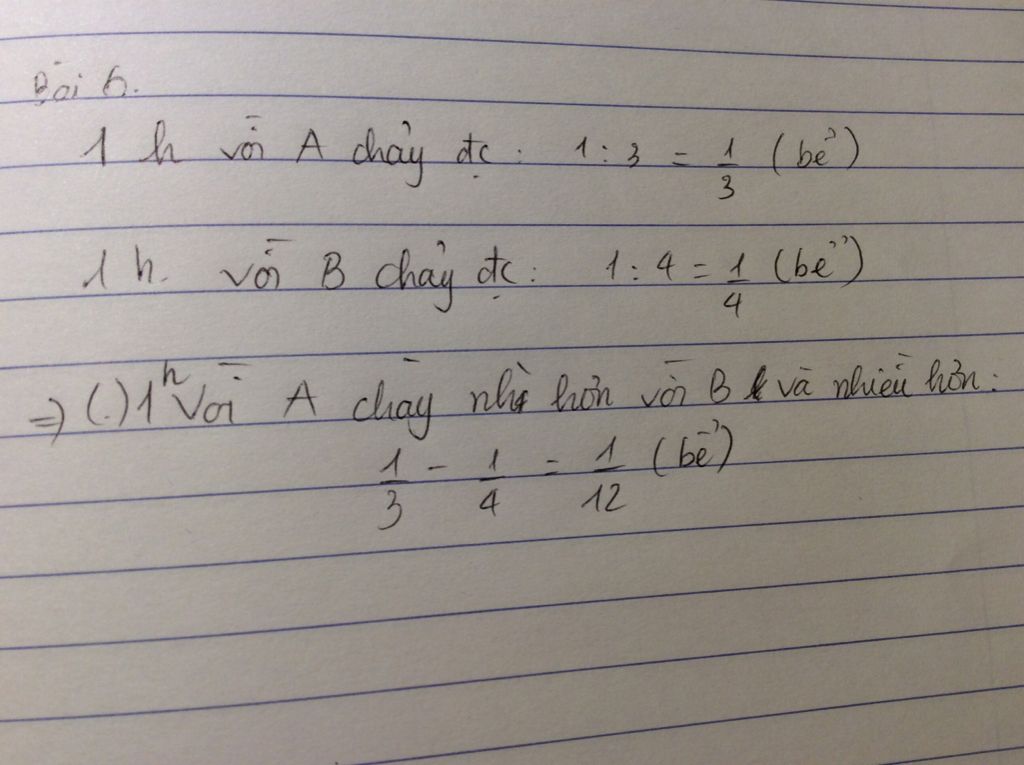 Bài 6.
1 h vòi A chảy đc : 1 : 3 = 1/3 (bể)
1 h. vòi B chảy đc : 1 : 4 = 1/4 (bể)
=> (.) 1h Vòi A chảy nhì hơn vòi B và nhiều hơn :
1/3 - 1/4 = 1/12 (bể)